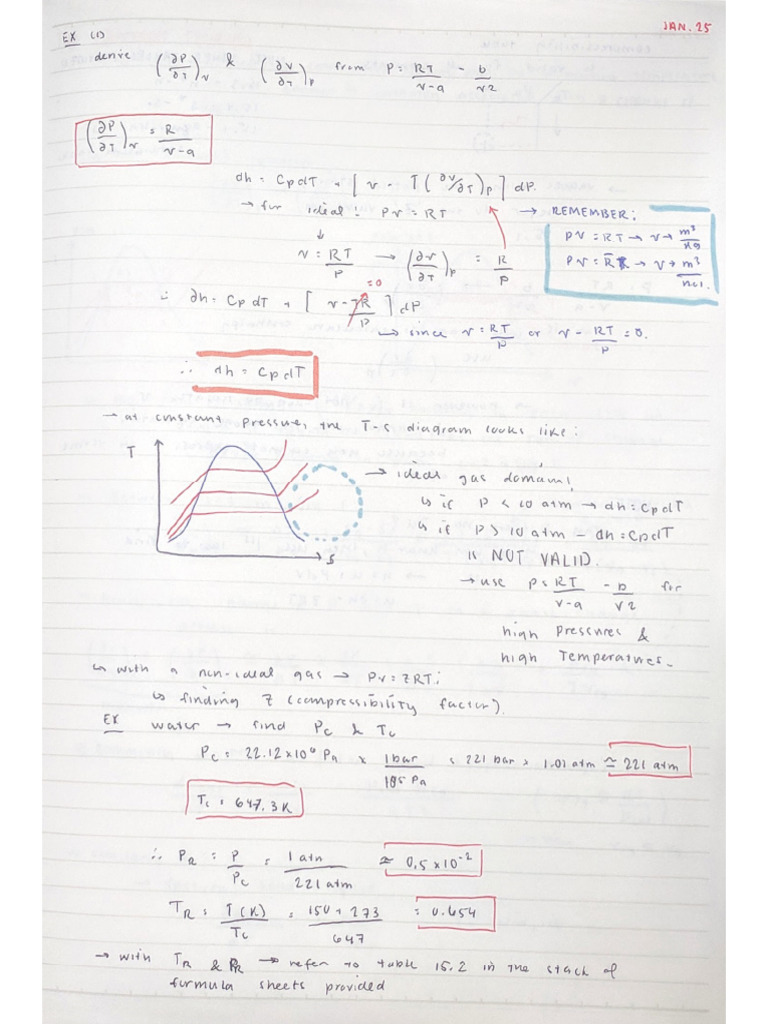 JAN. 25
EX (1)
derive (∂P/∂T)v & (∂V/∂T)p from P = RT/(v-a) - b/v2
(∂P/∂T)v = R/(v-a)
dh = CpdT + [v - T(∂V/∂T)p] dP.
→ for ideal: Pv = RT
→ REMEMBER:
PV = RT → V → m³/kg
PV = R̄T → V → m³/mol.
↓
v = RT/P → (∂V/∂T)p = R/P
=0
∴ ∂h = CpdT + [v - TR/P] dP
→ since v = RT/P or v - RT/P = 0.
∴ dh = CpdT
→ at constant pressure, the T-s diagram looks like:
T
s
→ ideal gas domain!
↳ if P < 10 atm → dh = CpdT
↳ if P > 10 atm - dh = CpdT
is NOT VALID.
→ use P = RT/(v-a) - b/v2 for
high pressures &
high temperatures.
↳ with a non-ideal gas → Pv = ZRT:
↳ finding Z (compressibility factor).
EX water → find Pc & Tc
Pc = 22.12 x 10⁶ Pa x 1 bar/10⁵ Pa = 221 bar x 1.01 atm ≃ 221 atm
Tc = 647.3K
∴ PR = P/Pc = 1 atm/221 atm ≃ 0.5 x 10⁻²
TR = T(K)/Tc = 150 + 273/647 = 0.654
→ with TR & PR → refer to table 15.2 in the stack of
formula sheets provided